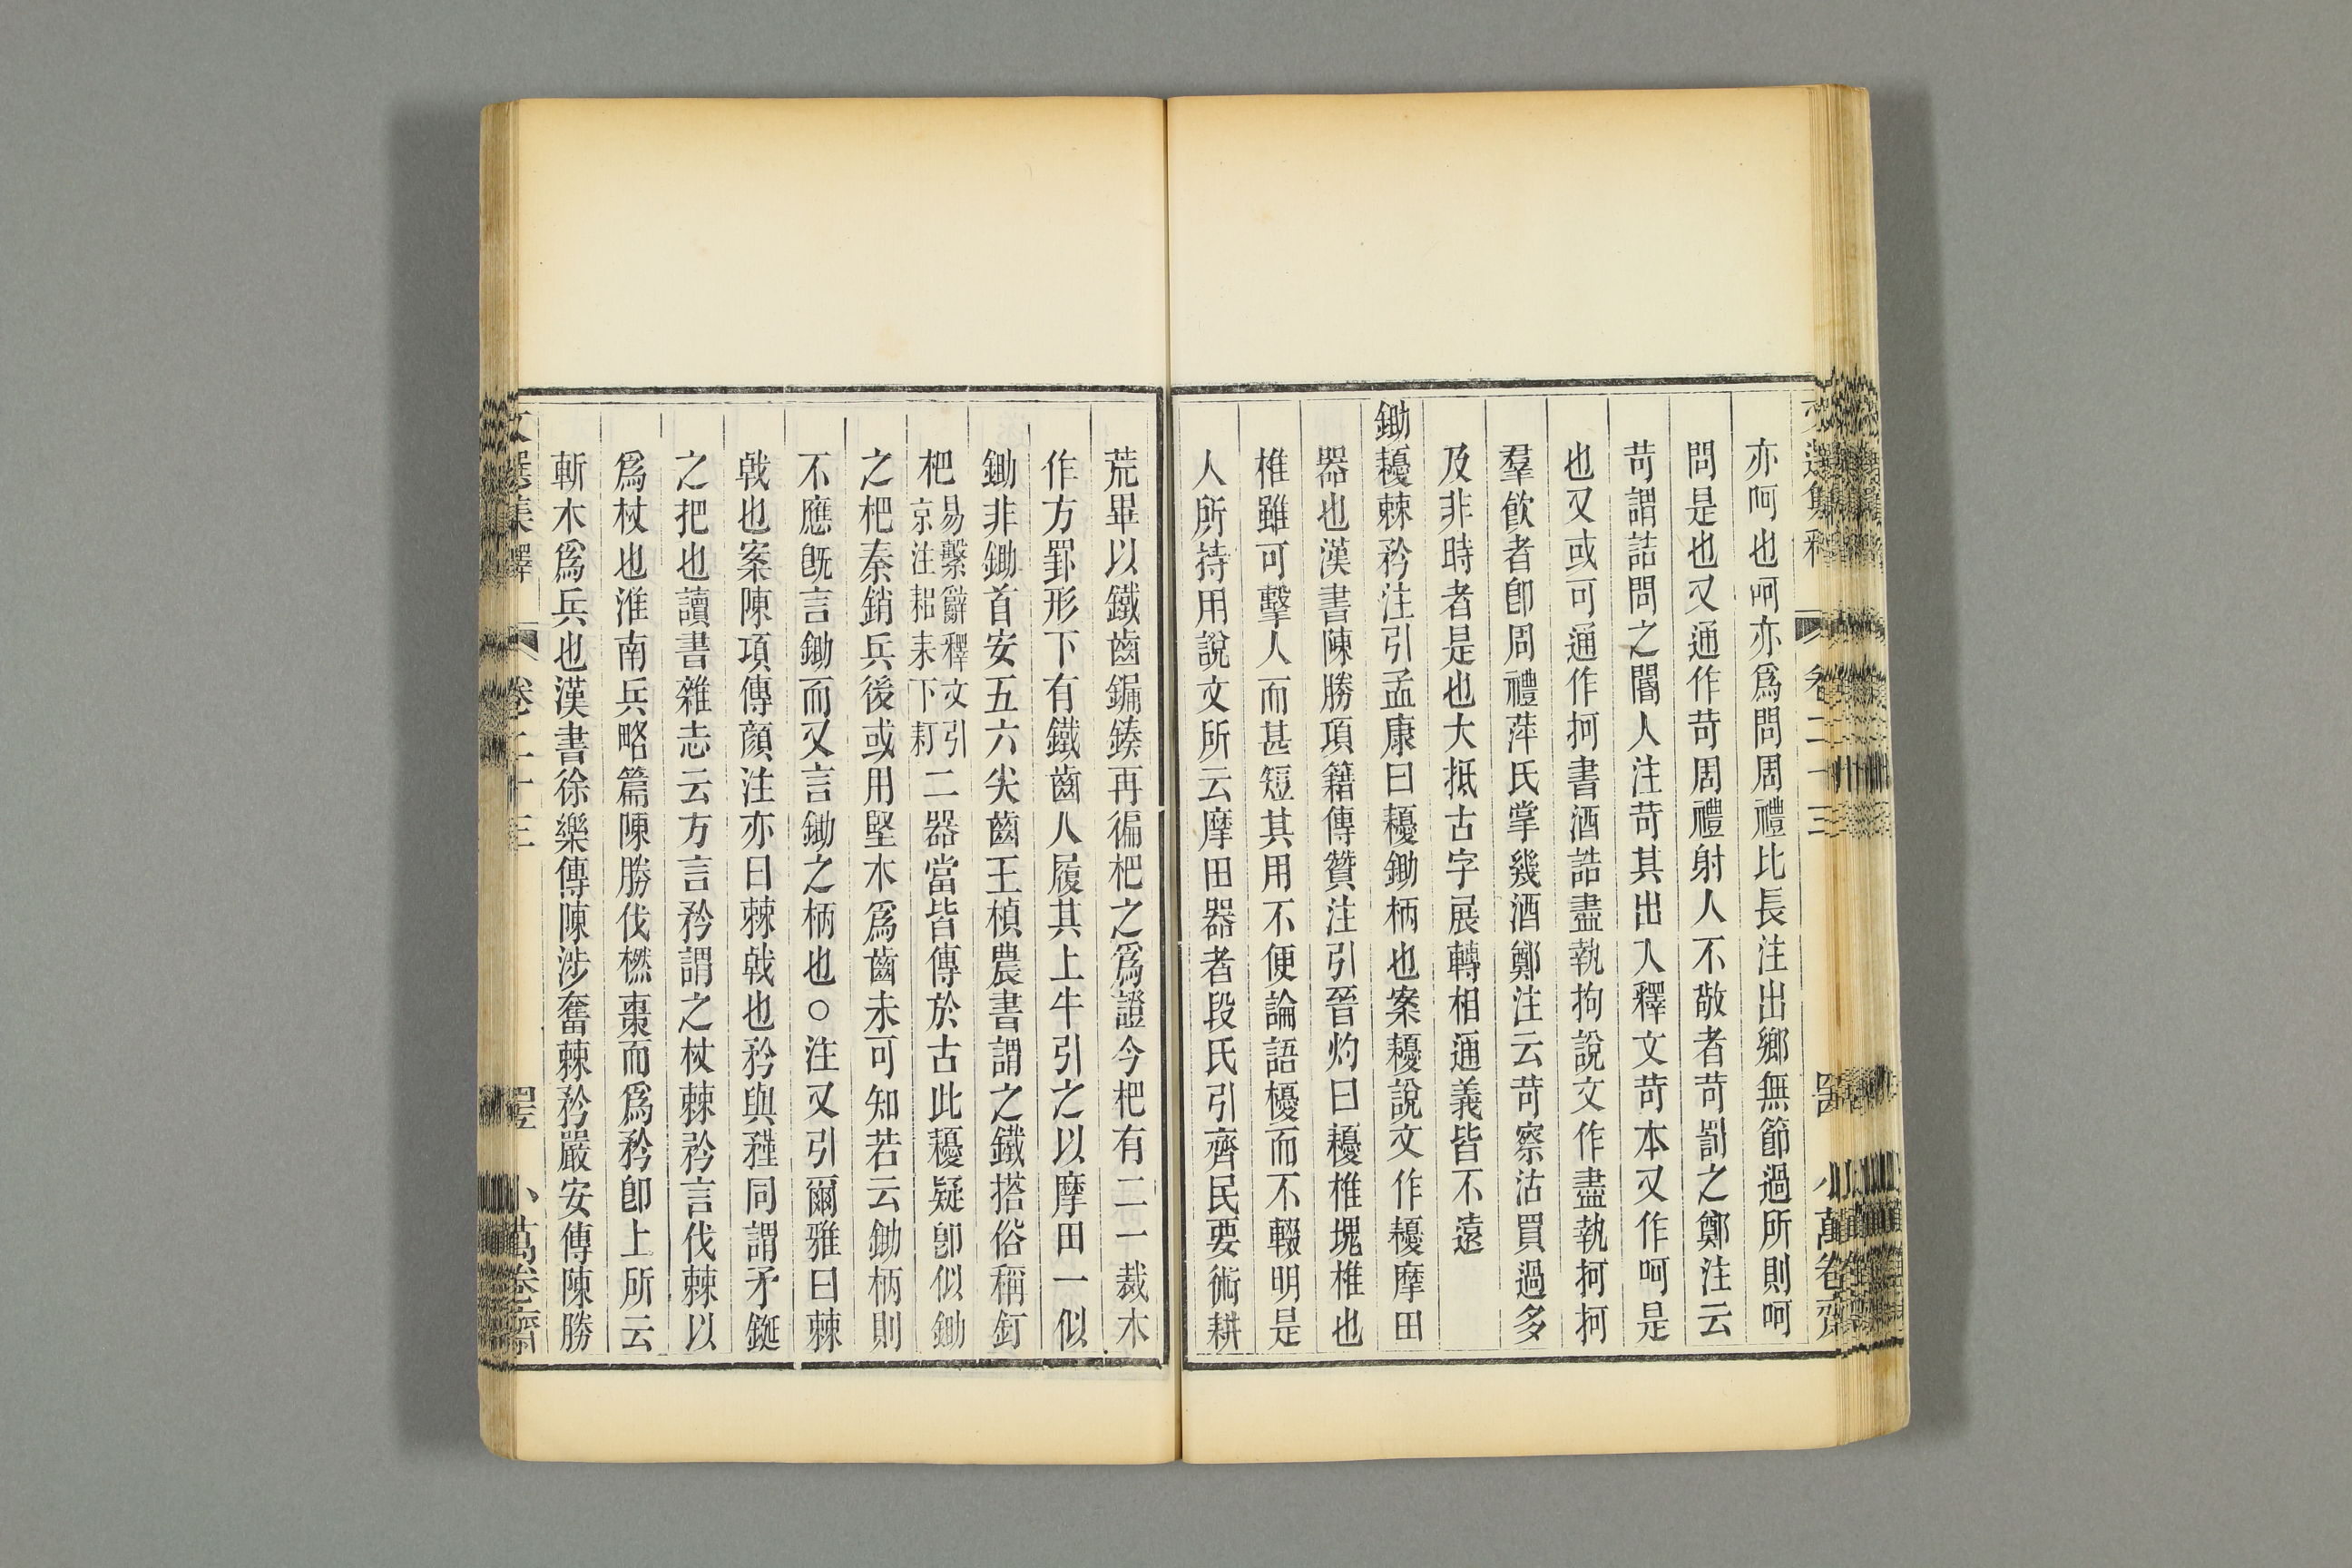 亦呵也呵亦爲問周禮比長注出鄉無節過所則呵
問是也又通作苛周禮射人不敬者苛罰之鄭注云
苛謂詰問之閽人注苛其出入釋文苛本又作呵是
也又或可通作抲書酒誥盡執拘說文作盡執抲抲
羣飮者卽周禮萍氏掌幾酒鄭注云苛察沽買過多
及非時者是也大抵古字展轉相通義皆不遠
鋤櫌棘矜注引孟康曰櫌鋤柄也案櫌說文作櫌摩田
器也漢書陳勝項籍傳贊注引晉灼曰櫌椎塊椎也
椎雖可擊人而甚短其用不便論語櫌而不輟明是
人所持用說文所云摩田器者段氏引齊民要術耕
荒畢以鐵齒鍽鏃再徧杷之爲證今杷有二一裁木
作方罫形下有鐵齒人履其上牛引之以摩田一似
鋤非鋤首安五六尖齒王楨農書謂之鐵搭俗稱釘
杷易繫辭釋文引京注耜耒下耓二器當皆傳於古此櫌疑卽似鋤
之杷秦銷兵後或用堅木爲齒未可知若云鋤柄則
不應旣言鋤而又言鋤之柄也○注又引爾雅曰棘
戟也案陳項傳顔注亦曰棘戟也矜與䅵同謂矛鋋
之把也讀書雜志云方言矜謂之杖棘矜言伐棘以
爲杖也淮南兵略篇陳勝伐橪棗而爲矜卽上所云
斬木爲兵也漢書徐樂傳陳涉奮棘矜嚴安傳陳勝
文選集釋 卷二十三 小萬卷齋